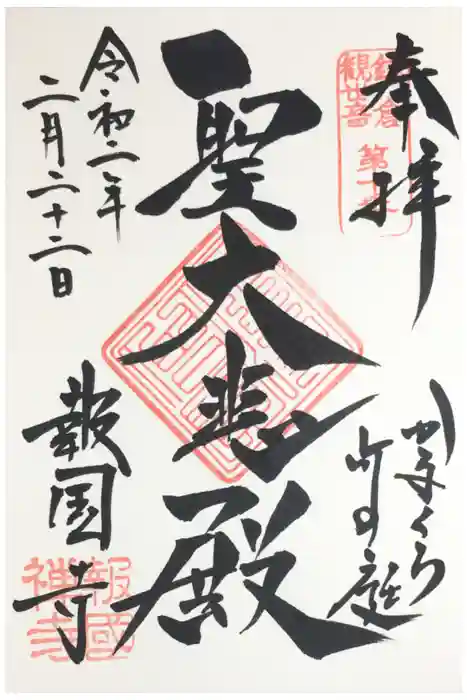 奉拝
鎌倉
観世音
かまくら
竹の庭
聖大悲殿
令和二年
二月二十二日
報国寺
報國
禅寺